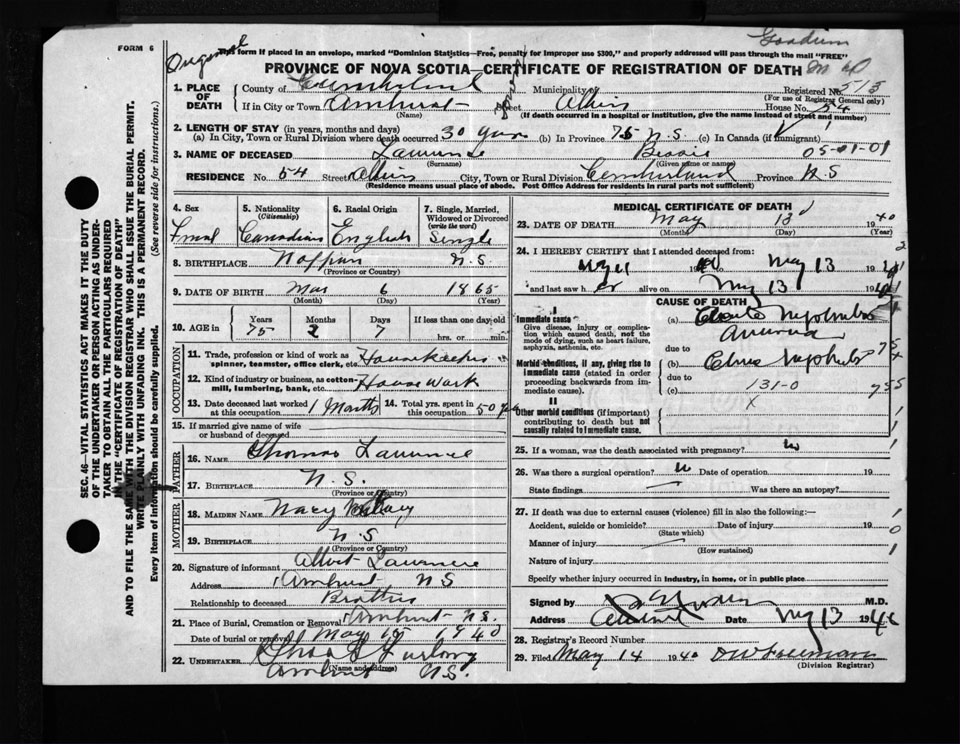 FORM 6
Original
This form if placed in an envelope, marked "Dominion Statistics—Free, penalty for improper use $300," and properly addressed will pass through the mail "FREE"
PROVINCE OF NOVA SCOTIA—CERTIFICATE OF REGISTRATION OF DEATH
1. PLACE OF DEATH
County of Cumberland Municipality of Registered No. 513
(For use of Registrar General only)
If in City or Town Amherst Street Albion House No. 54
(Name) (If death occurred in a hospital or institution, give the name instead of street and number)
2. LENGTH OF STAY (in years, months and days)
(a) In City, Town or Rural Division where death occurred 30 years (b) In Province 75 N.S. (c) In Canada (if immigrant)
3. NAME OF DECEASED Lawrence Bessie 05-01-01
(Surname) (Given name or names)
RESIDENCE No. 54 Street Albion City, Town or Rural Division Cumberland Province N S
(Residence means usual place of abode. Post Office Address for residents in rural parts not sufficient)
4. Sex 5. Nationality (Citizenship) 6. Racial Origin 7. Single, Married, Widowed or Divorced (write the word)
Canadian English Single
8. BIRTHPLACE Nappan N.S.
(Province or Country)
9. DATE OF BIRTH Mar 6 1865
(Month) (Day) (Year)
10. AGE in Years Months Days If less than one day old
75 2 7 hrs. or min.
OCCUPATION
11. Trade, profession or kind of work as spinner, teamster, office clerk, etc. Housekeeper
12. Kind of industry or business, as cotton-mill, lumbering, bank, etc. House Work
13. Date deceased last worked at this occupation 1 Months 14. Total yrs. spent in this occupation 50 yrs
15. If married give name of wife or husband of deceased
FATHER
16. NAME Thomas Lawrence
17. BIRTHPLACE N.S.
(Province or Country)
MOTHER
18. MAIDEN NAME
19. BIRTHPLACE N.S
(Province or Country)
20. Signature of informant Albert Lawrence
Address Amherst N S
Relationship to deceased Brother
21. Place of Burial, Cremation or Removal Amherst N.S.
Date of burial or removal May 15 1940
22. UNDERTAKER Furlong
(Name and address)
Amherst N.S.
MEDICAL CERTIFICATE OF DEATH
23. DATE OF DEATH May 13 1940
(Month) (Day) (Year)
24. I HEREBY CERTIFY that I attended deceased from:
19 May 13 19
and last saw her alive on May 13 19
CAUSE OF DEATH
I
Immediate cause
Give disease, injury or complication which caused death, not the mode of dying, such as heart failure, asphyxia, asthenia, etc.
(a)
due to
Morbid conditions, if any, giving rise to immediate cause (stated in order proceeding backwards from immediate cause).
(b)
due to
(c) 131-0
II
Other morbid conditions (if important) contributing to death but not causally related to immediate cause.
X
25. If a woman, was the death associated with pregnancy?
26. Was there a surgical operation? Date of operation 19
State findings Was there an autopsy?
27. If death was due to external causes (violence) fill in also the following:—
Accident, suicide or homicide? Date of injury 19
(State which)
Manner of injury
(How sustained)
Nature of injury
Specify whether injury occurred in industry, in home, or in public place
Signed by M.D.
Address Amherst Date May 13 1940
28. Registrar's Record Number
29. Filed May 14 1940 D W Freeman
(Division Registrar)
SEC. 46—VITAL STATISTICS ACT MAKES IT THE DUTY
OF THE UNDERTAKER OR PERSON ACTING AS UNDER-
TAKER TO OBTAIN ALL THE PARTICULARS REQUIRED
IN THE "CERTIFICATE OF REGISTRATION OF DEATH"
AND TO FILE THE SAME WITH THE DIVISION REGISTRAR WHO SHALL ISSUE THE BURIAL PERMIT.
WRITE PLAINLY WITH UNFADING INK. THIS IS A PERMANENT RECORD.
Every item of information should be carefully supplied. (See reverse side for instructions.)